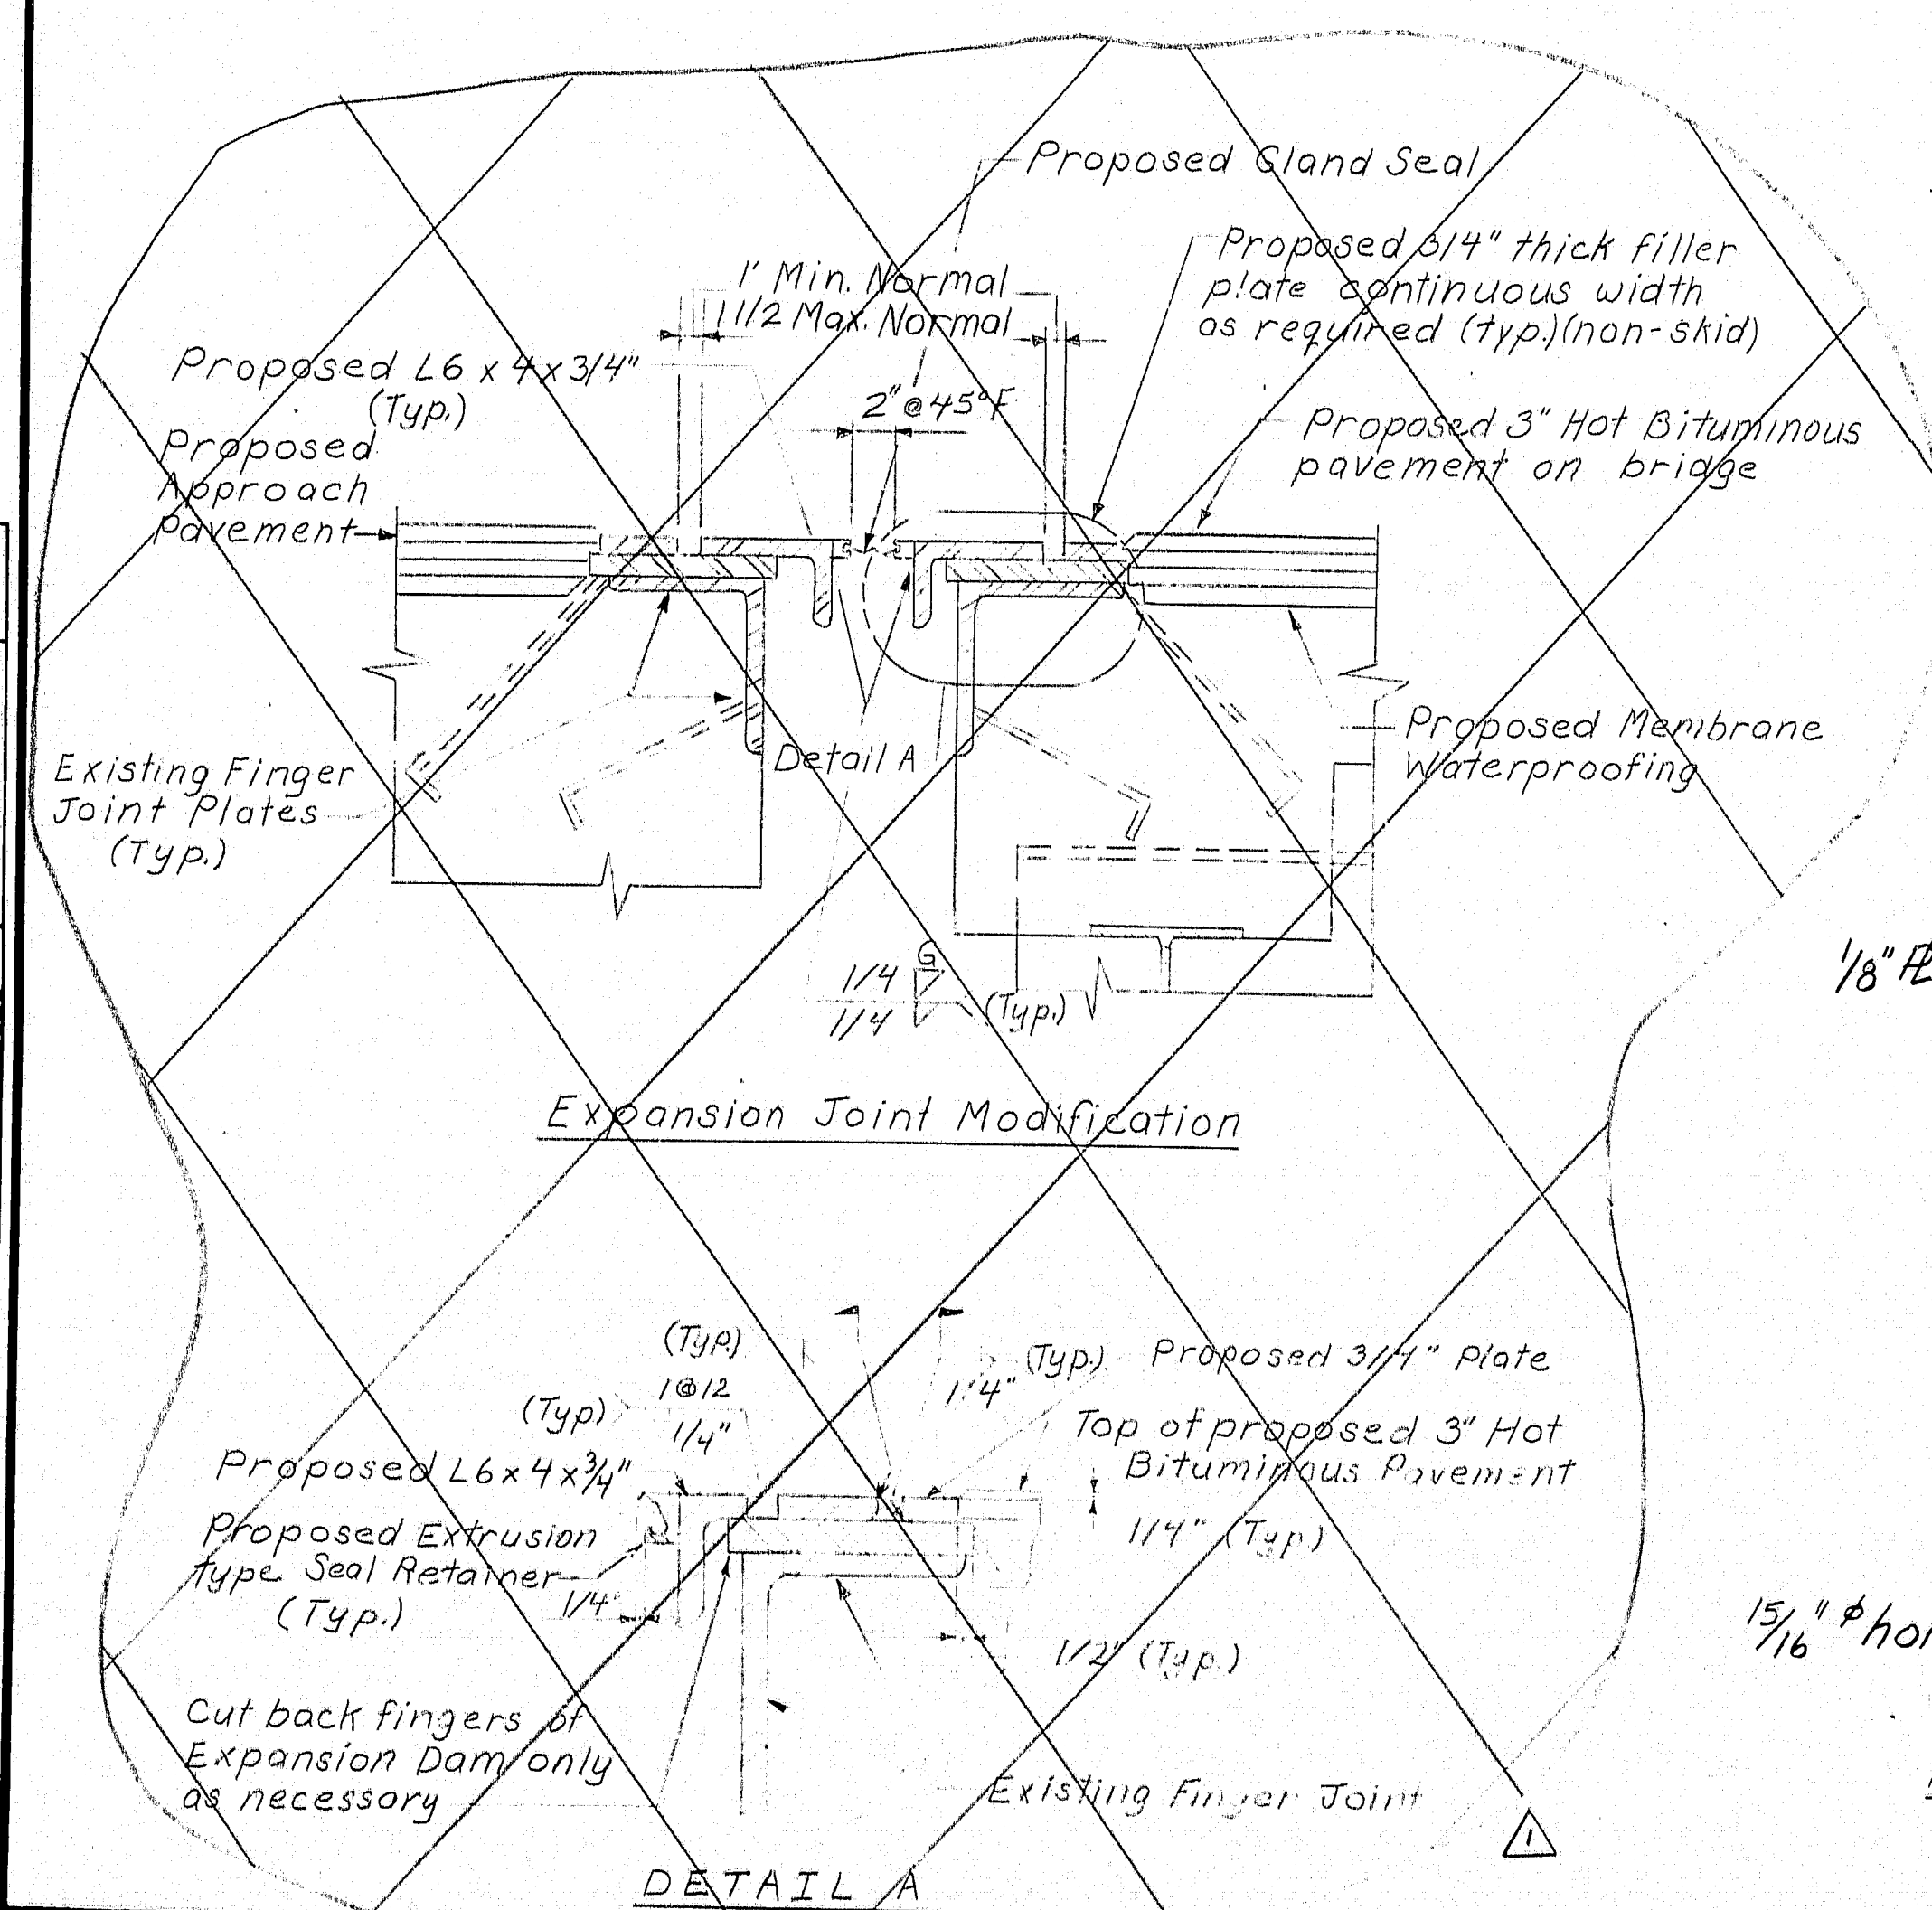 Proposed Gland Seal
Proposed 3/4" thick filler
plate continuous width
as required (typ.)(non-skid)
1' Min. Normal
1 1/2 Max. Normal
Proposed L6 x 4 x 3/4"
(Typ.)
2" @ 45°F
Proposed
Approach
Pavement
Proposed 3" Hot Bituminous
pavement on bridge
Proposed Membrane
Waterproofing
Detail A
Existing Finger
Joint Plates
(Typ.)
1/4
G
1/4
(Typ.)
1/8" PL
Expansion Joint Modification
(Typ.)
1@12
(Typ)
1/4"
(Typ.)
1/4"
Proposed 3/4" Plate
Top of proposed 3" Hot
Bituminous Pavement
Proposed L6 x 4 x 3/4"
Proposed Extrusion
type Seal Retainer
(Typ.)
1/4"
1/4" (Typ.)
1/2" (Typ.)
15/16" φ
Cut back fingers of
Expansion Dam only
as necessary
Existing Finger Joint
1
DETAIL A